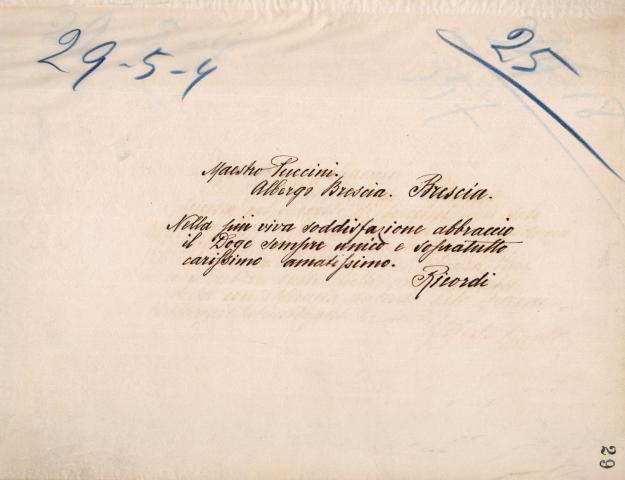 29-5-4
25
Maestro Puccini.
Albergo Brescia. Brescia.
Nella più viva soddisfazione abbraccio
il Doge sempre unico e sopratutto
carissimo amatissimo.
Ricordi
29